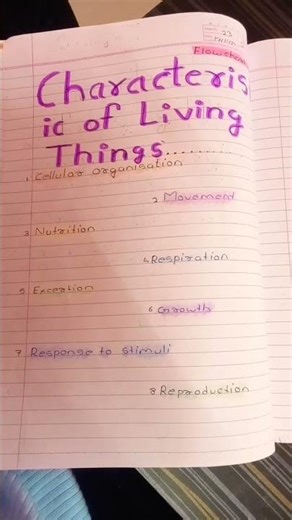 23
Flowchart
Characteris
ic of Living
Things.........
1 Cellular organisation
2 Movement
3 Nutrition
4 Respiration
5 Excertion
6 Growth
7 Response to Stimuli
8 Reproduction